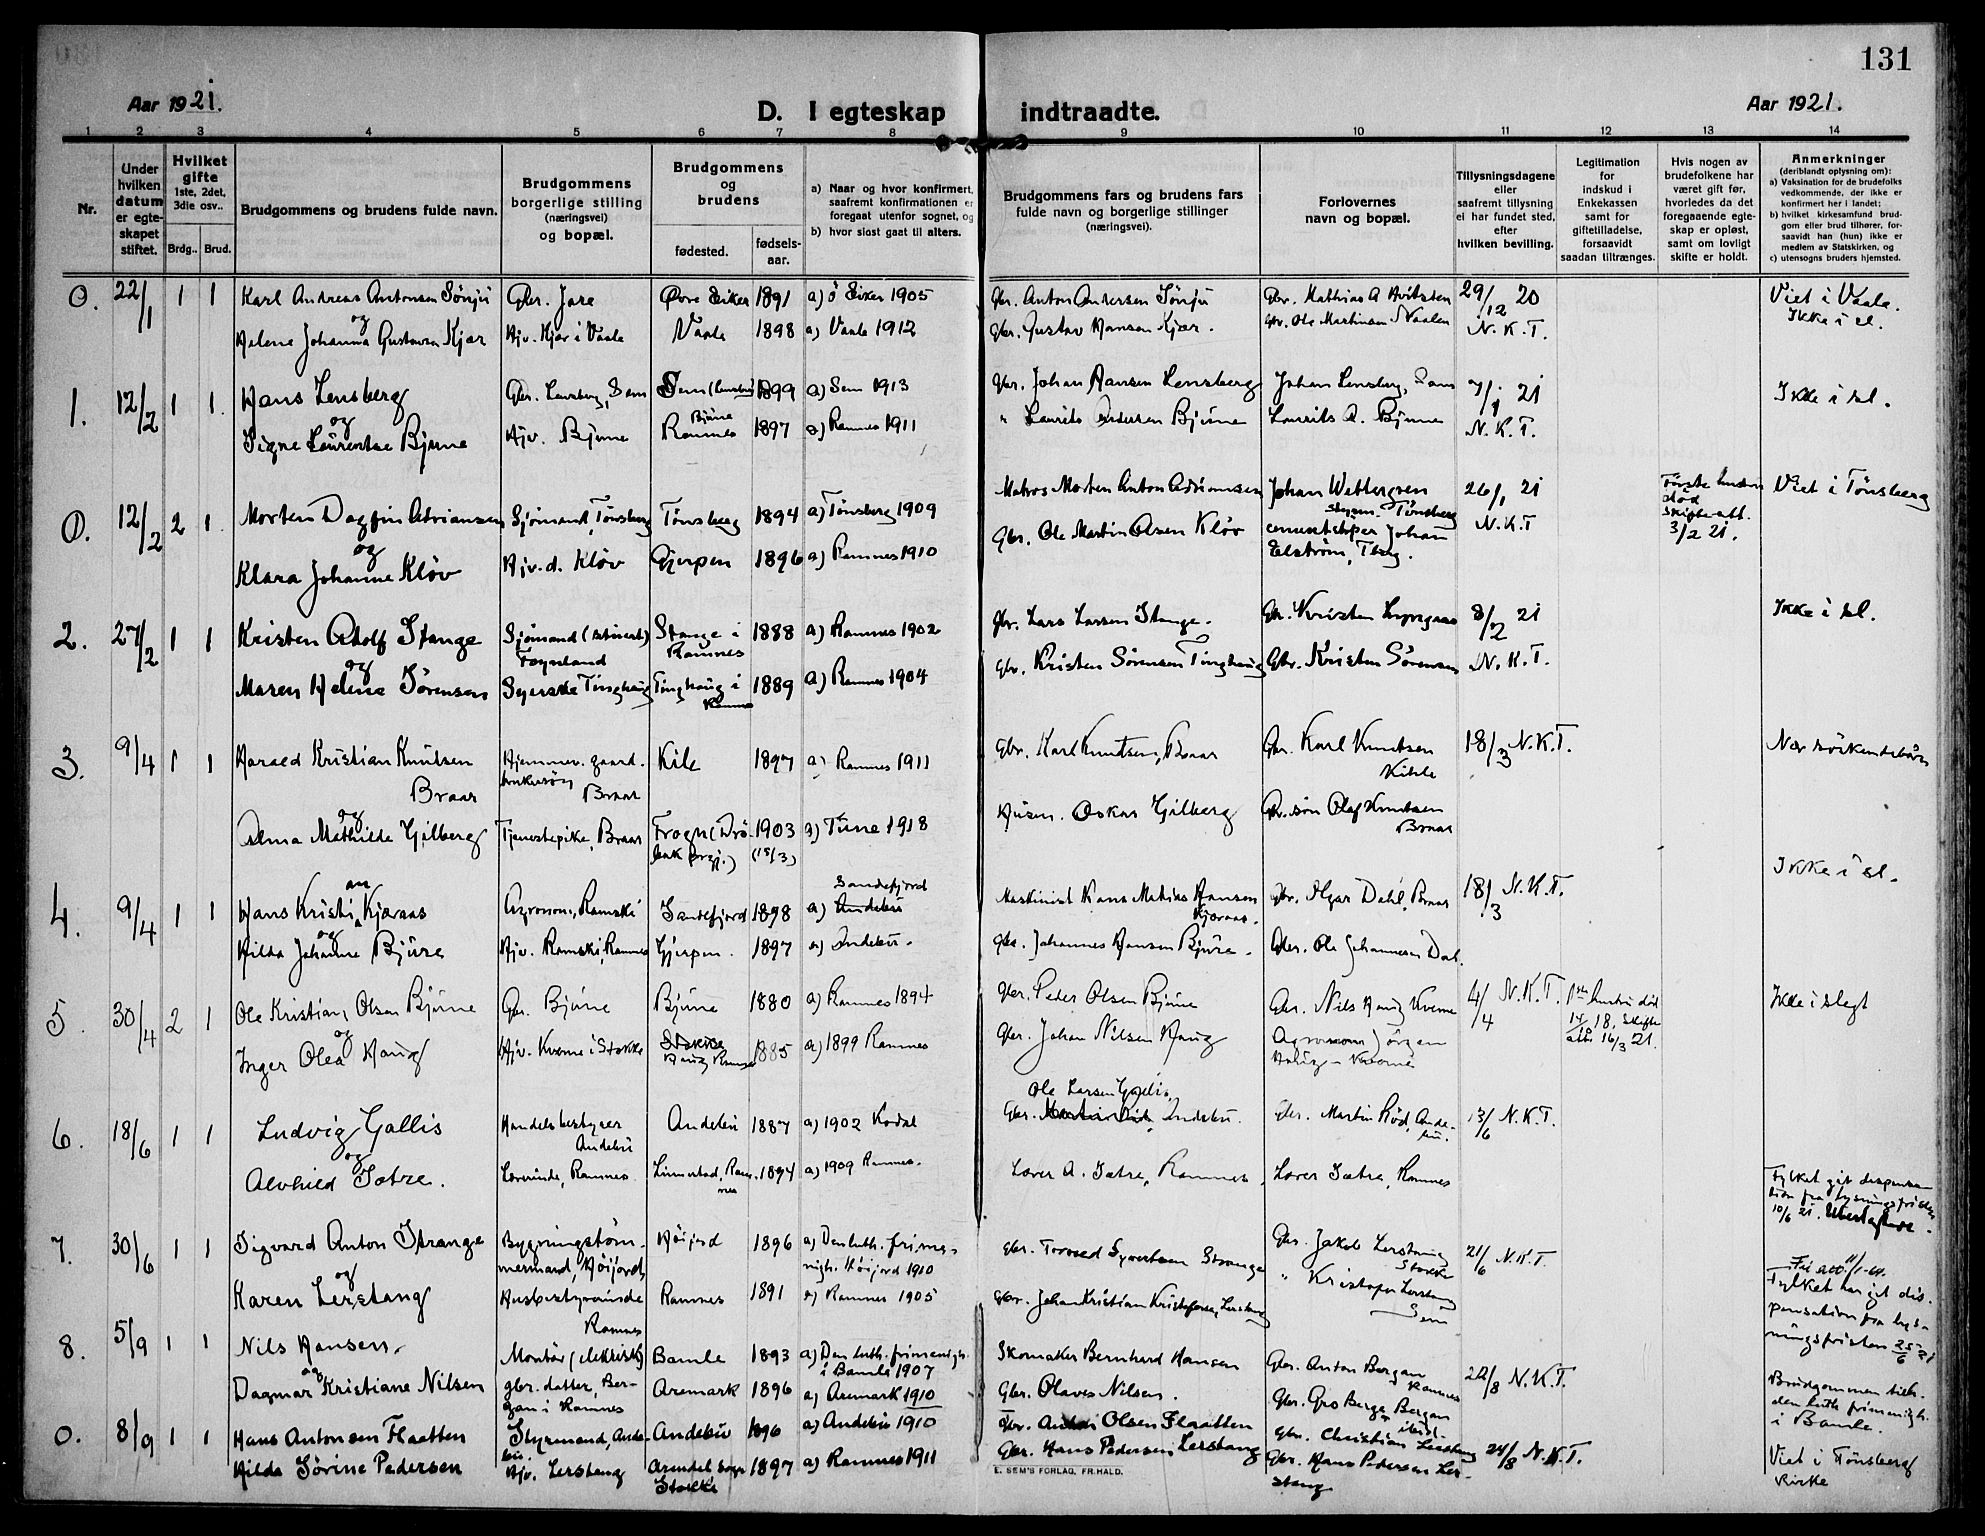 131
Aar 1921.
D. I egteskap indtraadte.
Aar 1921.
1 2 3 4 5 6 7 8 9 10 11 12 13 14
Nr.
Under hvilken datum er egteskapet stiftet.
Hvilket gifte 1ste, 2det, 3die osv..
Brdg.. Brud.
Brudgommens og brudens fulde navn.
Brudgommens borgerlige stilling (næringsvei) og bopæl.
Brudgommens og brudens
fødested. fødsels-aar.
a) Naar og hvor konfirmert, saafremt konfirmationen er foregaat utenfor sognet, og
b) hvor sidst gaat til alters.
Brudgommens fars og brudens fars fulde navn og borgerlige stillinger (næringsvei).
Forlovernes navn og bopæl.
Tillysningsdagene eller saafremt tillysning ei har fundet sted, efter hvilken bevilling.
Legitimation for indskud i Enkekassen samt for giftetilladelse, forsaavidt saadan tiltrænges.
Hvis nogen av brudefolkene har været gift før, hvorledes da det foregaaende egteskap er opløst, samt om lovligt skifte er holdt.
Anmerkninger (deriblandt oplysning om):
a) Vaksination for de brudefolks vedkommende, der ikke er konfirmert her i landet;
b) hvilket kirkesamfund brudgom eller brud tilhører, forsaavidt han (hun) ikke er medlem av Statskirken, og
c) utensogns bruders hjemsted.
0. 22/1 1 1 Karl Andreas Antonsen Sønju Gbr. Jare Øvre Eiker 1891 a) Ø Eiker 1905 Gbr. Anton Andersen Sønju Gbr. Mathias A 29/12 20 Viet i Vaale.
og
Ikke i sl.
Helene Johanna Gustavsen Kjær Hjv. Kjær i Vaale Vaale 1898 a) Vaale 1912 Gbr. Gustav Hansen Kjær. Gbr. Ole Martinsen N. K. T.
1. 12/2 1 1. Hans Lensberg Gbr. Lensberg, Sem Sem (Lensberg) 1899 a) Sem 1913 Gbr. Johan Hansen Lensberg Johan Lensberg, Sem 7/1 21 Ikke i sl.
og
Signe Laurentse Bjune Hjv. Bjune Bjune Ramnes 1897 a) Ramnes 1911 " Laurits Andersen Bjune Laurits A. Bjune N. K. T.
0. 12/2 2 1. Morten Dagfin Adriansen Sjømand, Tønsberg Tønsberg 1894 a) Tønsberg 1909 Matros Morten Anton Adriansen Johan Wettergren Tønsberg 26/1 21 Første hustru død skifte att. 3/2 21. Viet i Tønsberg
og
Klara Johanne Kløv Hjv. d. Kløv Gjerpen 1896 a) Ramnes 1910 Gbr. Ole Martin Olsen Kløv cementstøper Johan Elstrøm, Tbrg. N. K. T
2. 27/2 1 1 Kristen Adolf Stange Sjømand (stuert) Føynland Stange i Ramnes 1888 a) Ramnes 1902 Gbr. Lars Larsen Stange. Gbr. Kristen 8/2 21 Ikke i sl.
og
Maren Helene Sørensen Syerske Tinghaug Tinghaug i Ramnes 1889 a) Ramnes 1904 Gbr. Kristen Sørensen Tinghaug Gbr. Kristen Sørensen N. K. T.
3. 9/4 1 1 Harald Kristian Knutsen Braar Hjemmev. gaardbrukersøn Braar Kile 1897 a) Ramnes 1911 Gbr. Karl Knutsen, Braar Gbr. Karl Knutsen 18/3 N.K.T. Nær søskendebarn
og
Alma Mathilde Gjilberg Tjenestepike, Braar Frogn (Drøbak prgj.) 1903 (15/3) a) Tune 1918 Husm. Oskar Gjilberg Gbr. søn Olaf Knutsen Braar
4. 9/4 1 1 Hans Kristian Kjæraas Agronom, Ramski Sandefjord 1898 a) Sandefjord Andebu Maskinist Hans Mathias Hansen Kjæraas. Gbr. Olgar Dahl, Braar 18/3 N.K.T. Ikke i sl.
og
Hilda Johanne Bjure Hjv. Ramski, Ramnes Gjerpen. 1897 a) Andebu. Gbr. Johannes Hansen Bjure. Gbr. Ole Johannesen Dal.
5. 30/4 2 1 Ole Kristian Olsen Bjune Gbr. Bjune Bjune 1880 a) Ramnes 1894 Gbr. Peder Olsen Bjune Gbr. Nils Haug Kverne 4/4 N.K.T. 1ste hustru død 14/10 18, skifteatt. 16/3 21. Ikke i slegt
og
Inger Olea Haug Hjv. Kverne i Stokke Stokke Haug Ramnes 1885 a) 1899 Ramnes Gbr. Johan Nilsen Haug Agronom Jørgen Haug - Kverne
6. 18/6 1 1 Ludvig Gallis Handelsbestyrer Andebu Andebu 1887 a) 1902 Kodal Ole Larsen Gallis, Gbr. Andebu. Gbr. Martin Rød, Andebu. 13/6 N.K.T.
og
Alvhild Sætre. Lærerinde, Ramnes Linnestad, Ramnes 1894 a) 1909 Ramnes. Lærer A. Sætre, Ramnes. Lærer Sætre, Ramnes
Fylket git dispensation fra lysningsfristen 10/6 21.
7. 30/6 1 1 Sigvard Anton Strange Bygningstømmermand, Høijord Høijord 1896 a) Den luth. frimenigh. Høijord 1910 Gbr. Tormod Syvertsen Strange Gbr. Jakob Lerstang Stokke 21/6 N.K.T.
og
Karen Lerstang Husbestyrerinde Ramnes Ramnes 1891 a) Ramnes 1905 Gbr. Johan Kristian Kristofersen, Lerstang " Kristofer Lerstang Sem
Fylket har git dispensation fra lysningsfristen 25/6 21
8. 5/9 1 1 Nils Hansen. Montør (elektrisk) Bamle 1893 a) Den luth. frimenigh. i Bamle 1907 Skomaker Bernhard Hansen Gbr. Anton Bergan Ramnes 22/8 N.K.T. Brudgommen tilh. den luth frimenigh. i Bamle.
og
Dagmar Kristiane Nilsen gbr. datter, Bergan i Ramnes Aremark 1896 a) Aremark 1910 Gbr. Olaves Nilsen. Gbr. Gro Berge Bergan ibid.
0. 8/9 1 1 Hans Antonsen Flaatten Styrmand, Andebu. Andebu 1896 a) Andebu 1910 Gbr. Olsen Flaatten Gbr. Christian Lerstang 24/8 N.K.T. Viet i Tønsberg Kirke
Hilda Sørine Pedersen Hjv. Lerstang Arendal sogn Stokke 1897 a) Ramnes 1911 Gbr. Hans Pedersen Lerstang Gbr. Hans Pedersen Lerstang
E. SEM'S FORLAG, FR.HALD.